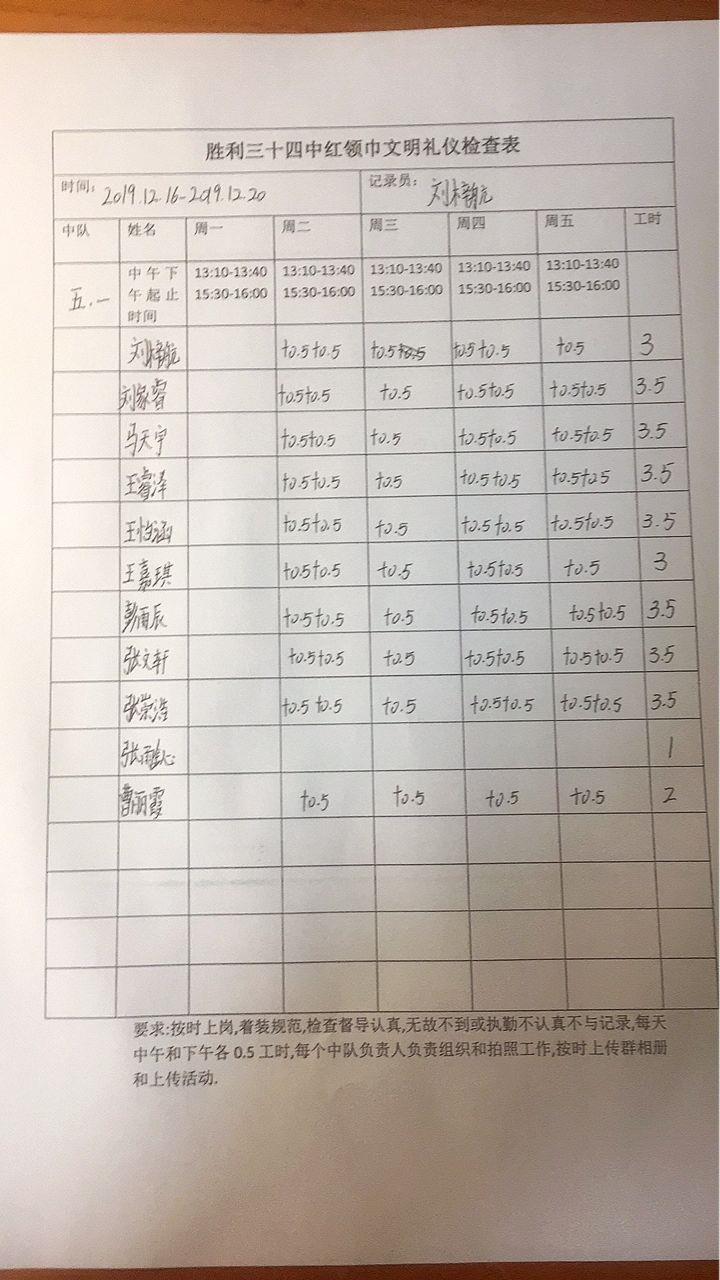 胜利三十四中红领巾文明礼仪检查表
时间: 2019.12.16-2019.12.20 记录员: 刘梓航
中队 姓名 周一 周二 周三 周四 周五 工时
五.一 中午下午起止时间 13:10-13:40 15:30-16:00 13:10-13:40 15:30-16:00 13:10-13:40 15:30-16:00 13:10-13:40 15:30-16:00 13:10-13:40 15:30-16:00
刘梓航 +0.5+0.5 +0.5 +0.5+0.5 +0.5 3
刘家睿 +0.5+0.5 +0.5 +0.5+0.5 +0.5+0.5 3.5
马天宇 +0.5+0.5 +0.5 +0.5+0.5 +0.5+0.5 3.5
王睿泽 +0.5+0.5 +0.5 +0.5+0.5 +0.5+0.5 3.5
王怡涵 +0.5+0.5 +0.5 +0.5+0.5 +0.5+0.5 3.5
王嘉琪 +0.5+0.5 +0.5 +0.5+0.5 +0.5 3
彭雨辰 +0.5+0.5 +0.5 +0.5+0.5 +0.5+0.5 3.5
张文轩 +0.5+0.5 +0.5 +0.5+0.5 +0.5+0.5 3.5
张崇浩 +0.5+0.5 +0.5 +0.5+0.5 +0.5+0.5 3.5
张 心 1
曹丽霞 +0.5 +0.5 +0.5 +0.5 2
要求:按时上岗,着装规范,检查督导认真,无故不到或执勤不认真不与记录,每天
中午和下午各 0.5 工时,每个中队负责人负责组织和拍照工作,按时上传群相册
和上传活动.